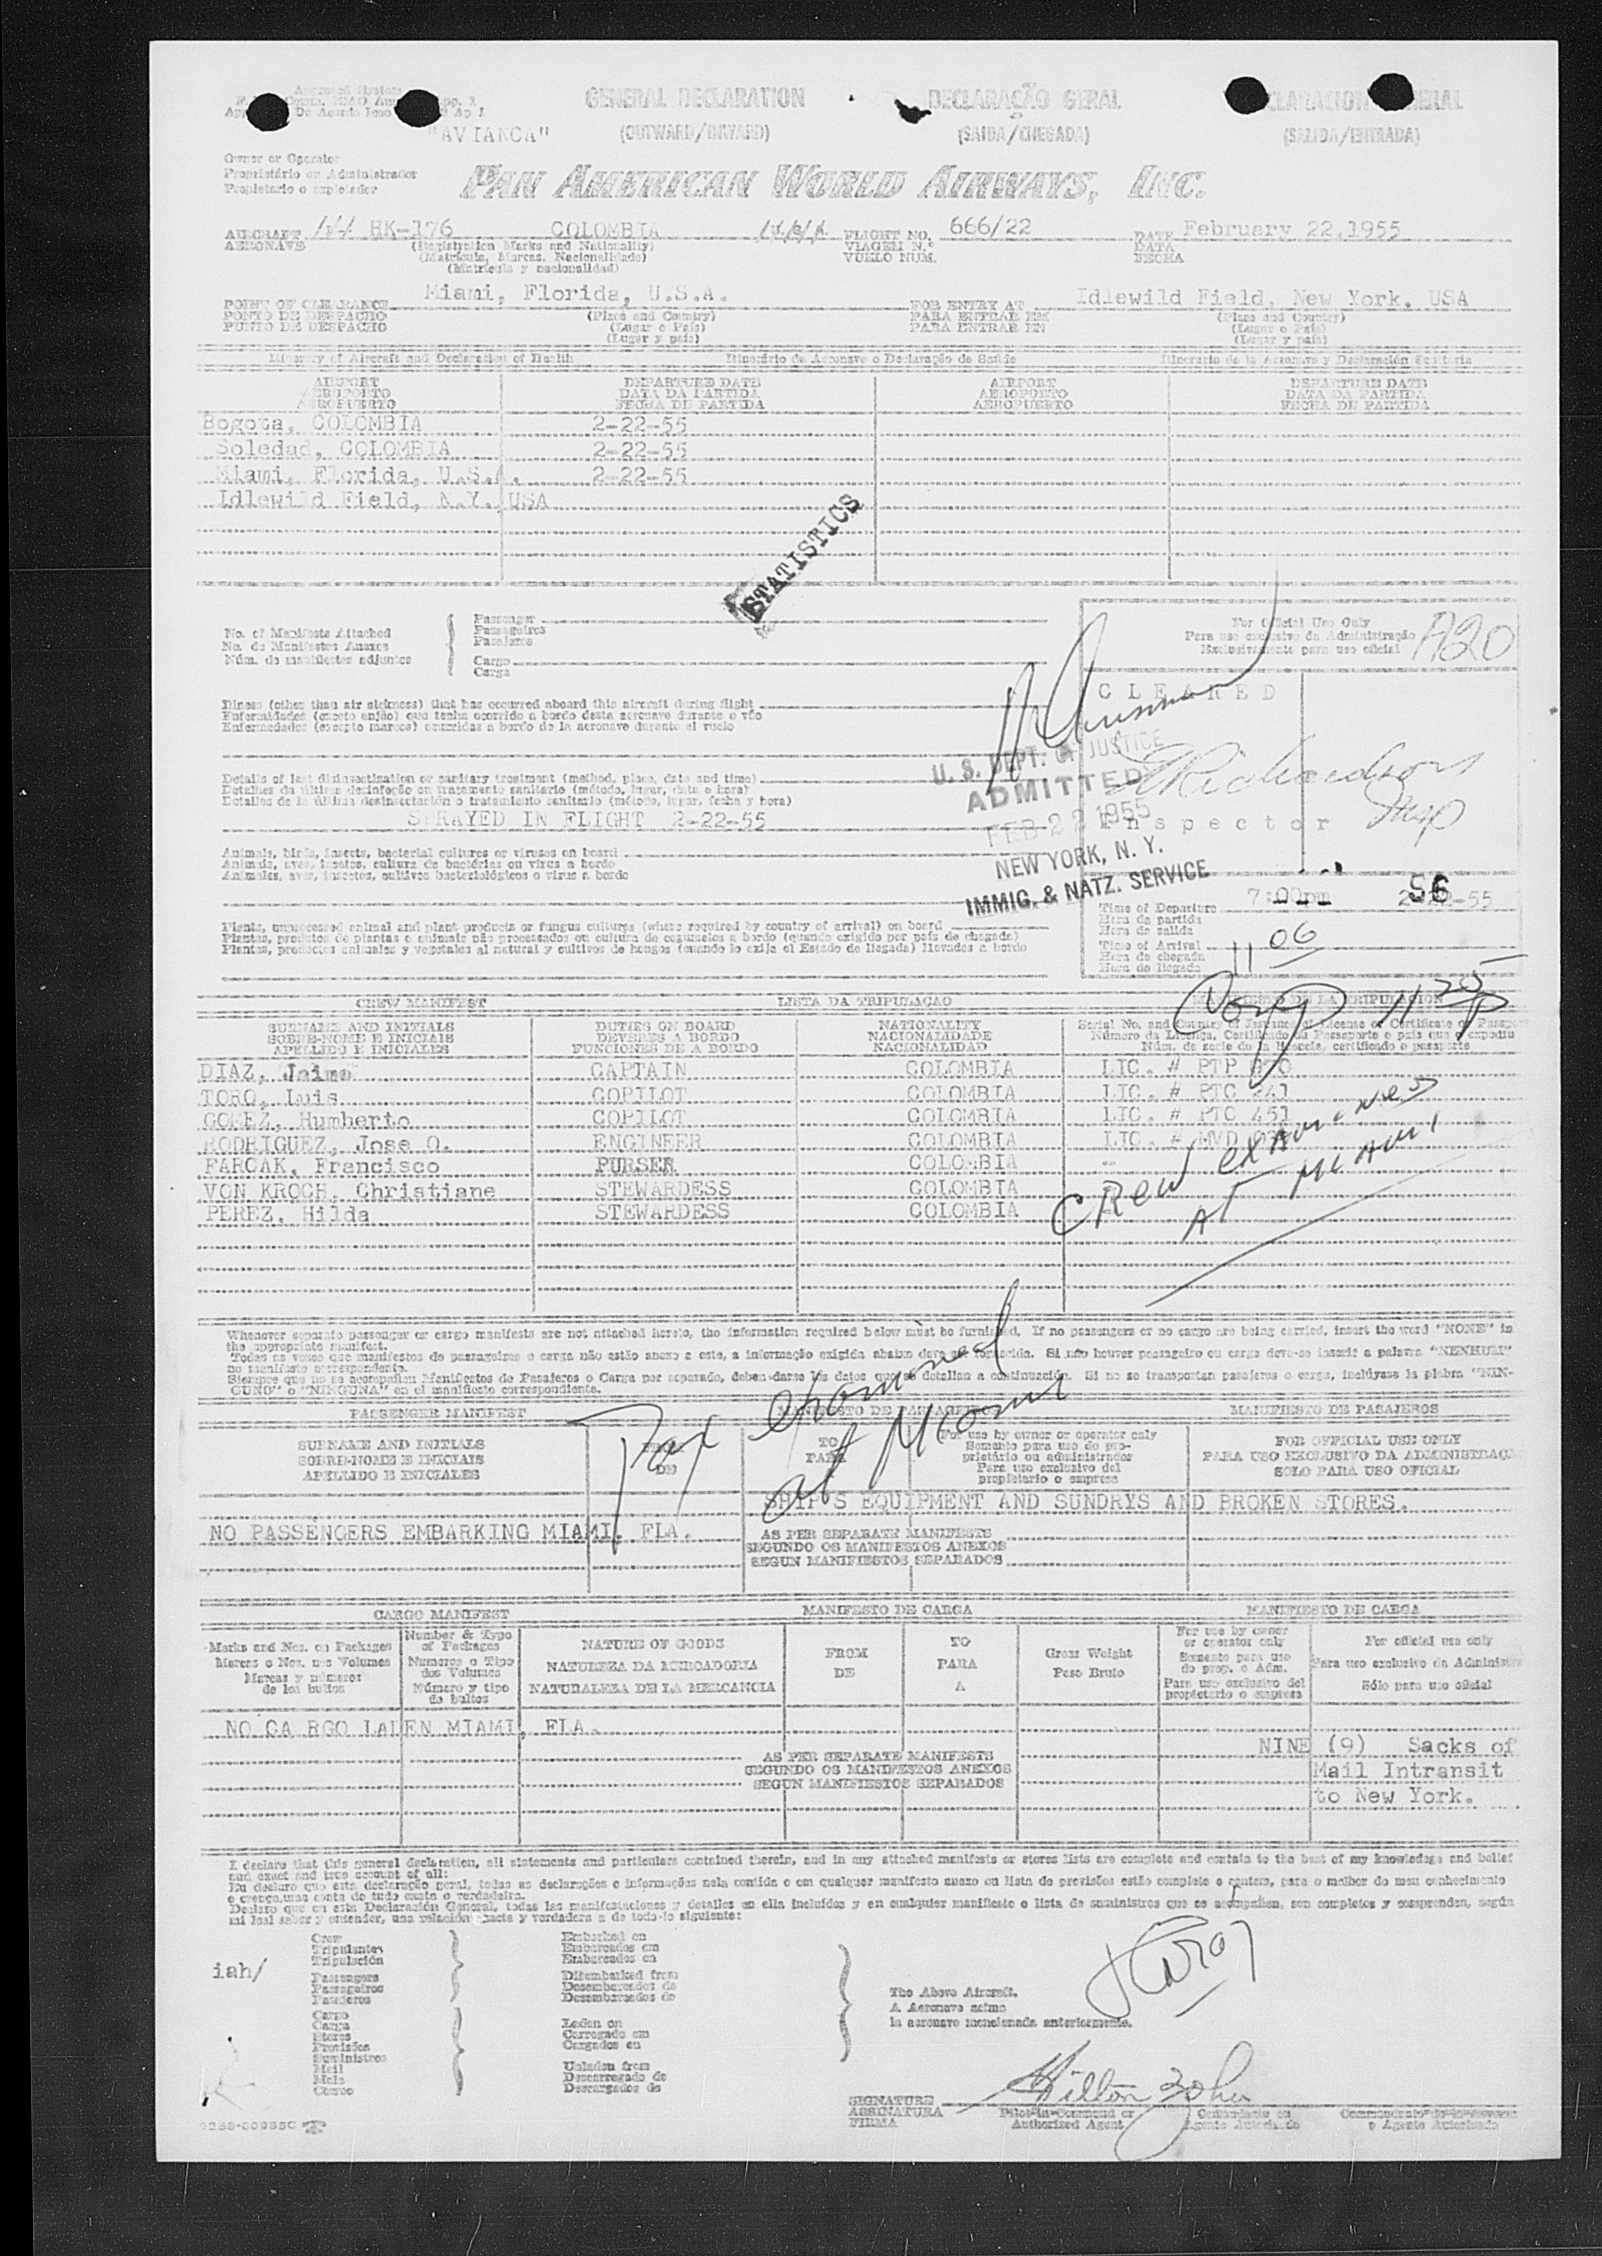 GENERAL DECLARATION
(OUTWARD/INWARD)
DECLARAÇÃO GERAL
(SAIDA/CHEGADA)
(SALIDA/ENTRADA)
"AVIANCA"
Owner or Operator
Proprietário ou Administrador
Propietario o explotador
PAN AMERICAN WORLD AIRWAYS, INC.
AIRCRAFT HK-176 COLOMBIA FLIGHT NO. 666/22 DATE February 22,1955
AERONAVE (Registration Marks and Nationality) VIAGEM N.º DATA
(Matrícula, Marcas, Nacionalidade) VUELO NUM. FECHA
(Matrícula y nacionalidad)
POINT OF CLEARANCE Miami, Florida, U.S.A. FOR ENTRY AT Idlewild Field, New York, USA
PONTO DE DESPACHO (Place and Country) PARA ENTRAR EM (Place and Country)
PUNTO DE DESPACHO (Lugar e País) PARA ENTRAR EN (Lugar e País)
(Lugar y país) (Lugar y país)
Itinerary of Aircraft and Declaration of Health Itinerário da Aeronave e Declaração de Saúde Itinerario de la Aeronave y Declaración Sanitaria
AIRPORT DEPARTURE DATE AIRPORT DEPARTURE DATE
AEROPORTO DATA DA PARTIDA AEROPORTO DATA DA PARTIDA
AEROPUERTO FECHA DE PARTIDA AEROPUERTO FECHA DE PARTIDA
Bogota, COLOMBIA 2-22-55
Soledad, COLOMBIA 2-22-55
Miami, Florida, U.S.A. 2-22-55
Idlewild Field, N.Y. USA
STATISTICS
No. of Manifests Attached
No. de Manifestos Anexos
Núm. de manifiestos adjuntos
Passenger
Passageiros
Pasajeros
Cargo
Carga
For Official Use Only
Para uso exclusivo da Administração
Exclusivamente para uso oficial
A20
CLEARED
Richardson
Insp
Inspector
Illness (other than air sickness) that has occurred aboard this aircraft during flight
Enfermidades (exceto enjôo) que tenha ocorrido a bordo desta aeronave durante o vôo
Enfermedades (excepto mareos) ocurridas a bordo de la aeronave durante el vuelo
U. S. DEPT. OF JUSTICE
ADMITTED
FEB 22 1955
NEW YORK, N. Y.
IMMIG. & NATZ. SERVICE
Details of last disinsectization or sanitary treatment (method, place, date and time)
Detalhes da última desinfeção ou tratamento sanitario (método, lugar, data e hora)
Detalles de la última desinsectación o tratamiento sanitario (método, lugar, fecha y hora)
SPRAYED IN FLIGHT 2-22-55
Animals, birds, insects, bacterial cultures or viruses on board
Animais, aves, insetos, cultura de bactérias ou virus a bordo
Animales, aves, insectos, cultivos bacteriológicos o virus a bordo
Plants, unprocessed animal and plant products or fungus cultures (where required by country of arrival) on board
Plantas, produtos de plantas e animais não processados ou cultura de cogumelos a bordo (quando exigido por país de chegada)
Plantas, productos animales y vegetales al natural y cultivos de hongos (cuando lo exija el Estado de llegada) llevados a bordo
Time of Departure 7:00pm 2-22-55
Hora da partida
Hora de salida
56
Time of Arrival 11 06
Hora da chegada
Hora de llegada
11 25 P
CREW MANIFEST LISTA DA TRIPULAÇÃO MANIFIESTO DE LA TRIPULACION
SURNAME AND INITIALS DUTIES ON BOARD NATIONALITY
SOBRE-NOME E INICIAIS DEVERES A BORDO NACIONALIDADE
APELLIDO E INICIALES FUNCIONES DE A BORDO NACIONALIDAD
DIAZ, Jaime CAPTAIN COLOMBIA LIC. # PTP
TORO, Luis COPILOT COLOMBIA LIC. # PTC 241
GOMEZ, Humberto COPILOT COLOMBIA LIC. # PTC 451
RODRIGUEZ, Jose O. ENGINEER COLOMBIA LIC. # MVD
FARCAK, Francisco PURSER COLOMBIA
VON KROCH, Christiane STEWARDESS COLOMBIA
PEREZ, Hilda STEWARDESS COLOMBIA
Crew examined
at Miami
Whenever separate passenger or cargo manifests are not attached hereto, the information required below must be furnished. If no passengers or no cargo are being carried, insert the word "NONE" in
the appropriate manifest.
Todas as vezes que manifestos de passageiros e carga não estão anexo a este, a informação exigida abaixo deve ser fornecida. Si não houver passageiro ou carga deve-se inserir a palavra "NENHUM"
no manifesto correspondente.
Siempre que no se acompañen Manifestos de Pasajeros o Carga por separado, deben darse los datos que se detallan a continuación. Si no se transportan pasajeros o carga, inclúyase la plabra "NIN-
GUNO" o "NINGUNA" en el manifiesto correspondiente.
Pax examined
at Miami
PASSENGER MANIFEST MANIFESTO DE PASSAGEIROS MANIFIESTO DE PASAJEROS
SURNAME AND INITIALS FROM TO For use by owner or operator only FOR OFFICIAL USE ONLY
SOBRE-NOME E INICIAIS DE PARA Somente para uso do pro- PARA USO EXCLUSIVO DA ADMINISTRAÇ
APELLIDO E INICIALES prietário ou administrador SOLO PARA USO OFICIAL
Para uso exclusivo del
propietario o empresa
SHIP'S EQUIPMENT AND SUNDRYS AND BROKEN STORES.
NO PASSENGERS EMBARKING MIAMI, FLA.
AS PER SEPARATE MANIFESTS
SEGUNDO OS MANIFESTOS ANEXOS
SEGUN MANIFIESTOS SEPARADOS
CARGO MANIFEST MANIFESTO DE CARGA MANIFIESTO DE CARGA
Marks and Nos. on Packages
Marcas e Nos. nos Volumes
Marcas y números
de los bultos
Number & Type
of Packages
Numeros e Tipo
dos Volumes
Número y tipo
de bultos
NATURE OF GOODS
NATUREZA DA MERCADORIA
NATURALEZA DE LA MERCANCIA
FROM
DE
TO
PARA
A
Gross Weight
Peso Bruto
For use by owner
or operator only
Somente para uso
do prop. o Adm.
Para uso exclusivo del
propietario o empresa
For official use only
Para uso exclusivo da Administra
Sólo para uso oficial
NO CARGO LADEN MIAMI, FLA.
AS PER SEPARATE MANIFESTS
SEGUNDO OS MANIFESTOS ANEXOS
SEGUN MANIFIESTOS SEPARADOS
NINE (9) Sacks of
Mail Intransit
to New York.
I declare that this general declaration, all statements and particulars contained therein, and in any attached manifests or stores lists are complete and contain to the best of my knowledge and belief
and exact and true account of all:
Eu declaro que esta declaração geral, todas as declarações e informações nela contida e em qualquer manifesto anexo ou lista de provisões estão completo e contem, para o melhor do meu conhecimento
e crença,uma conta de tudo exato e verdadeira.
Declaro que en esta Declaración General, todas las manifestaciones y detalles en ella incluidos y en cualquier manifiesto o lista de suministros que se acompañen, son completos y comprenden, según
mi leal saber y entender, una relación exacta y verdadera a de todo-lo siguiente:
iah/
Crew
Tripulantes
Tripulación
Passengers
Passageiros
Pasajeros
Cargo
Carga
Stores
Provisões
Suministros
Mail
Mala
Correo
Embarked on
Embarcados em
Embarcados en
Disembarked from
Desembarcados de
Desembarcados de
Laden on
Carregado em
Cargados en
Unladen from
Descarregado de
Descargados de
The Above Aircraft.
A Aeronave acima
la aeronave mencionada anteriormente.
SIGNATURE
ASSINATURA
FIRMA
Pilot-in-Command or
Authorized Agent
Comandante ou
Agente Autorizado
o Agente Autorizado